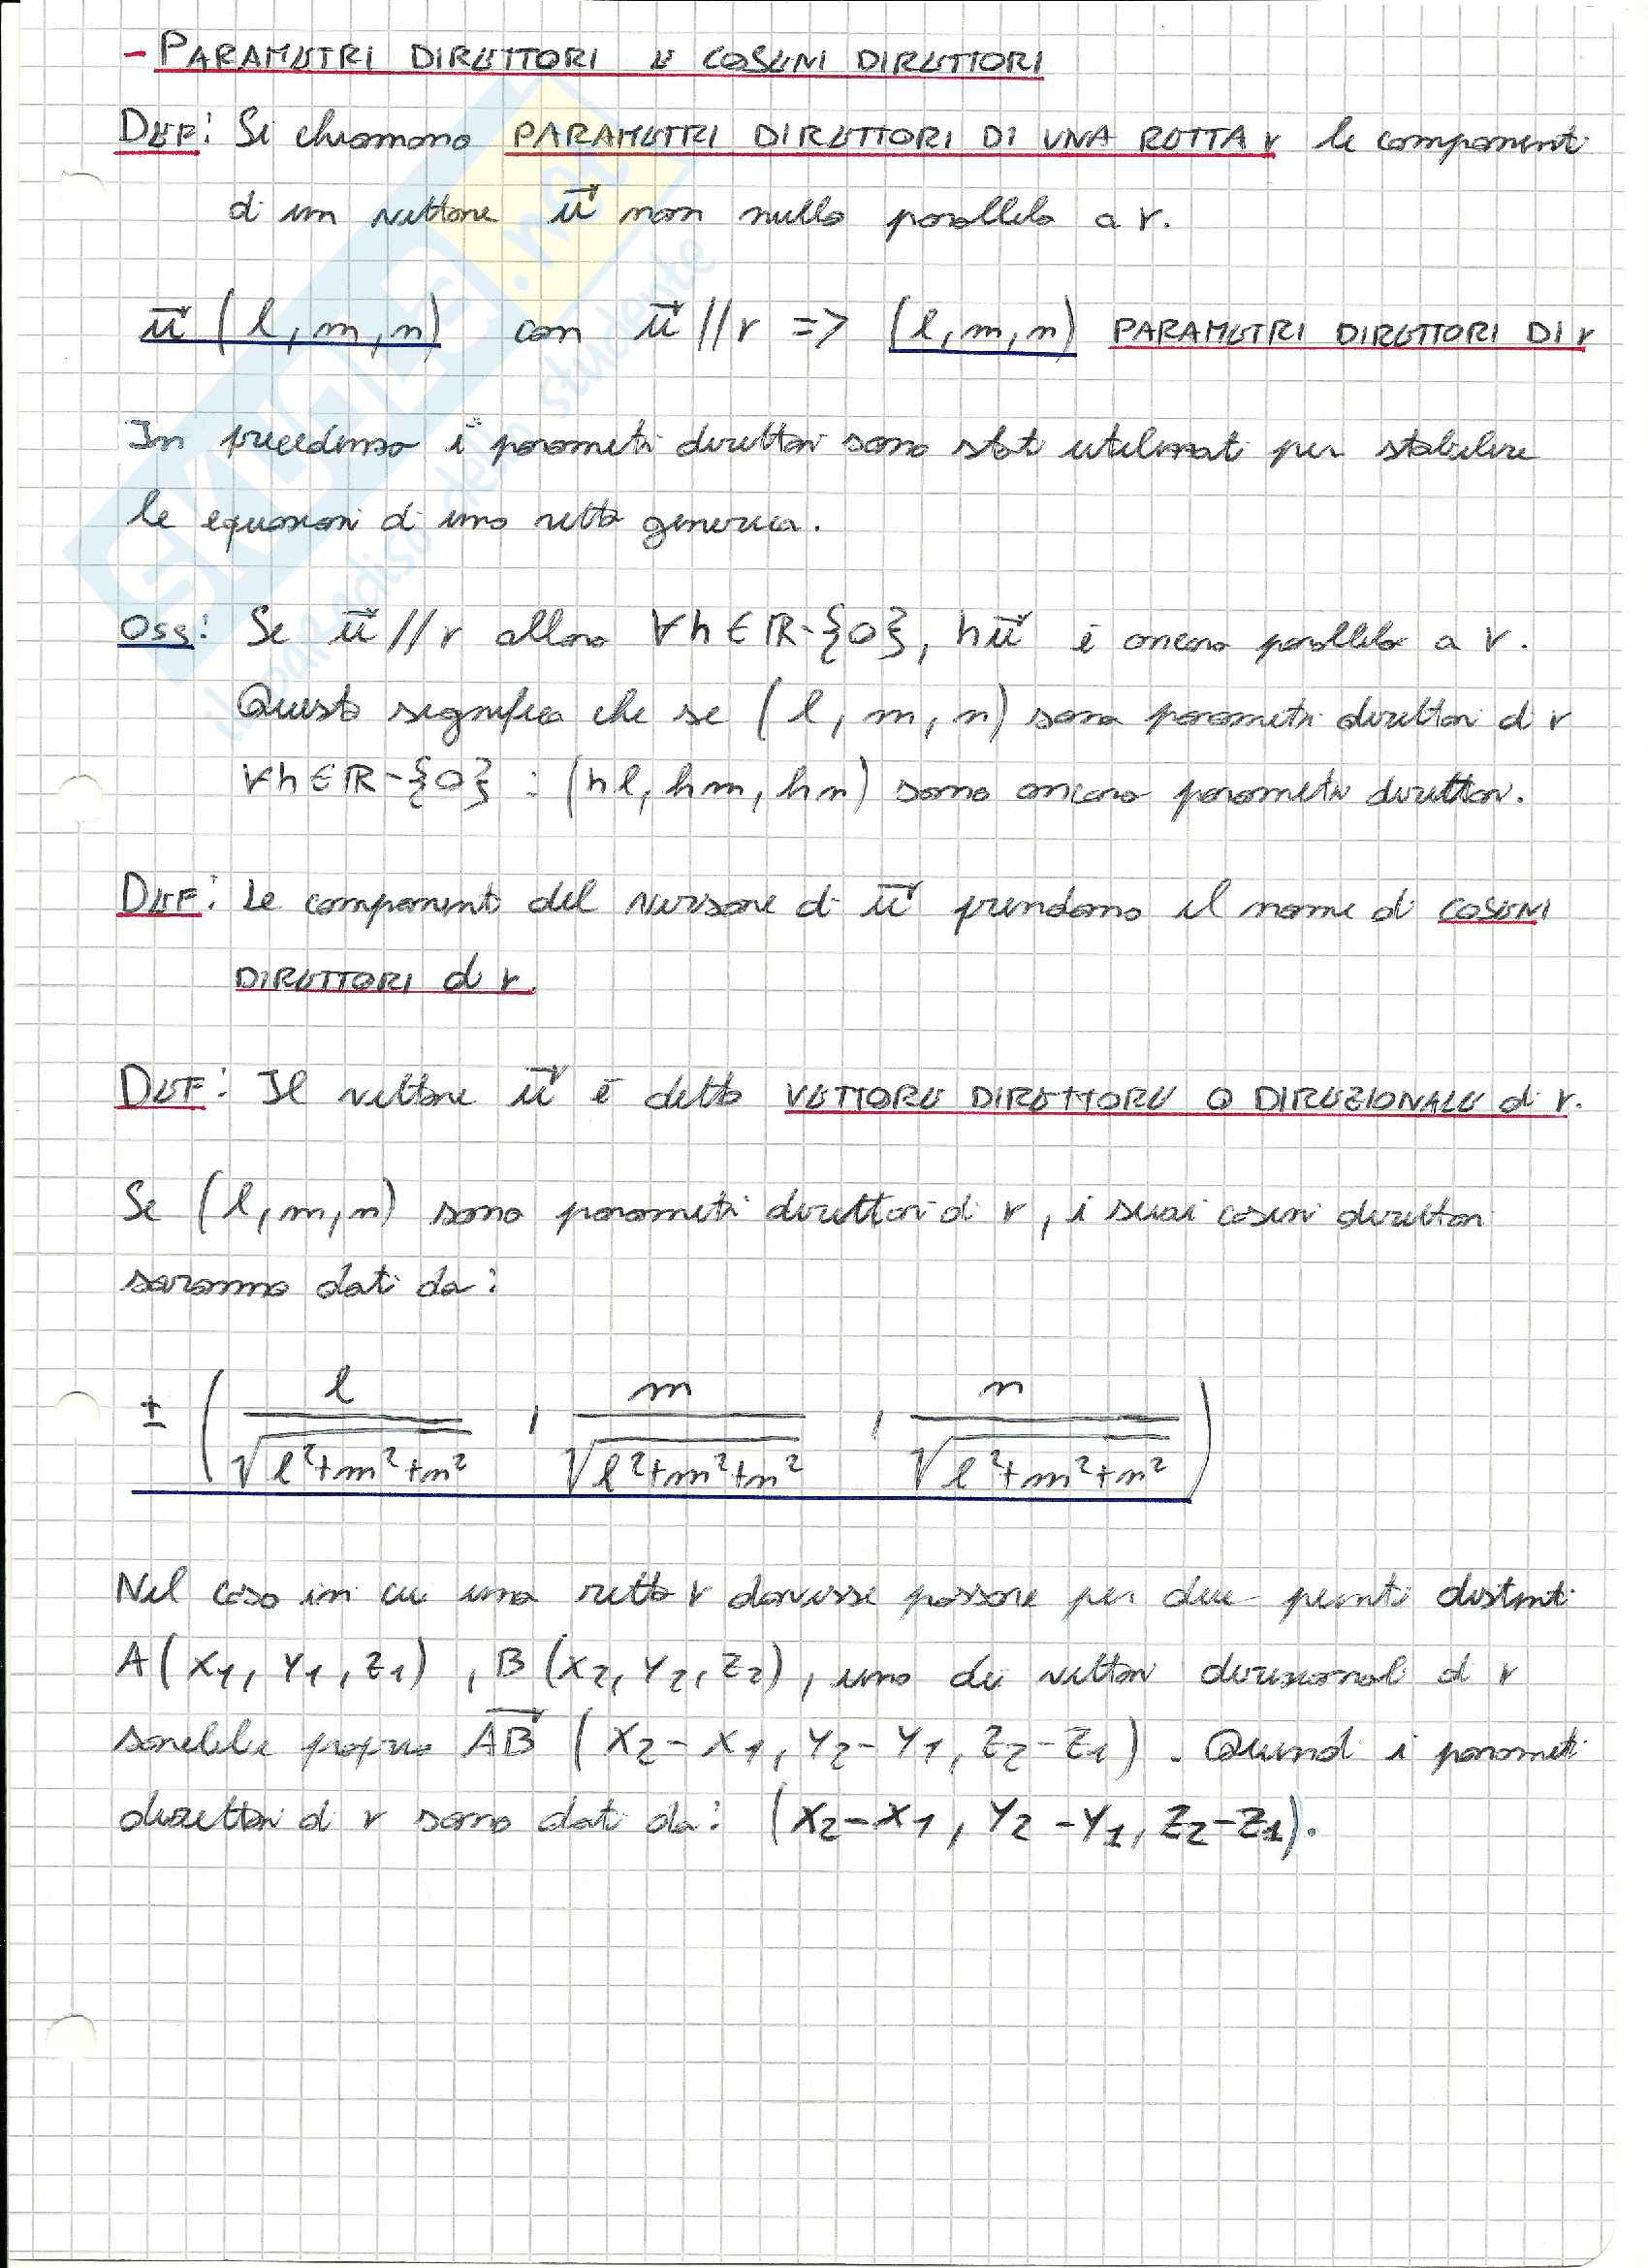 - PARAMETRI DIRETTORI E COSENI DIRETTORI
DEF: Si chiamano PARAMETRI DIRETTORI DI UNA RETTA r le componenti
di un vettore u⃗ non nullo parallelo a r.
u⃗ (l, m, n) con u⃗ // r => (l, m, n) PARAMETRI DIRETTORI DI r
In precedenza i parametri direttori sono stati utilizzati per stabilire
le equazioni di una retta generica.
Oss: Se u⃗ // r allora ∀h∈ℝ-{0}, hu⃗ è ancora parallelo a r.
Questo significa che se (l, m, n) sono parametri direttori di r
∀h∈ℝ-{0} : (hl, hm, hn) sono ancora parametri direttori.
DEF: Le componenti del versore di u⃗ prendono il nome di COSENI
DIRETTORI di r.
DEF: Il vettore u⃗ è detto VETTORE DIRETTORE O DIREZIONALE di r.
Se (l, m, n) sono parametri direttori di r, i suoi coseni direttori
saranno dati da:
± ( l/√(l²+m²+n²) , m/√(l²+m²+n²) , n/√(l²+m²+n²) )
Nel caso in cui una retta r dovesse passare per due punti distinti
A(x₁, y₁, z₁) , B(x₂, y₂, z₂), uno dei vettori direzionali di r
sarebbe proprio AB⃗ (x₂-x₁, y₂-y₁, z₂-z₁). Quindi i parametri
direttori di r sono dati da: (x₂-x₁, y₂-y₁, z₂-z₁).